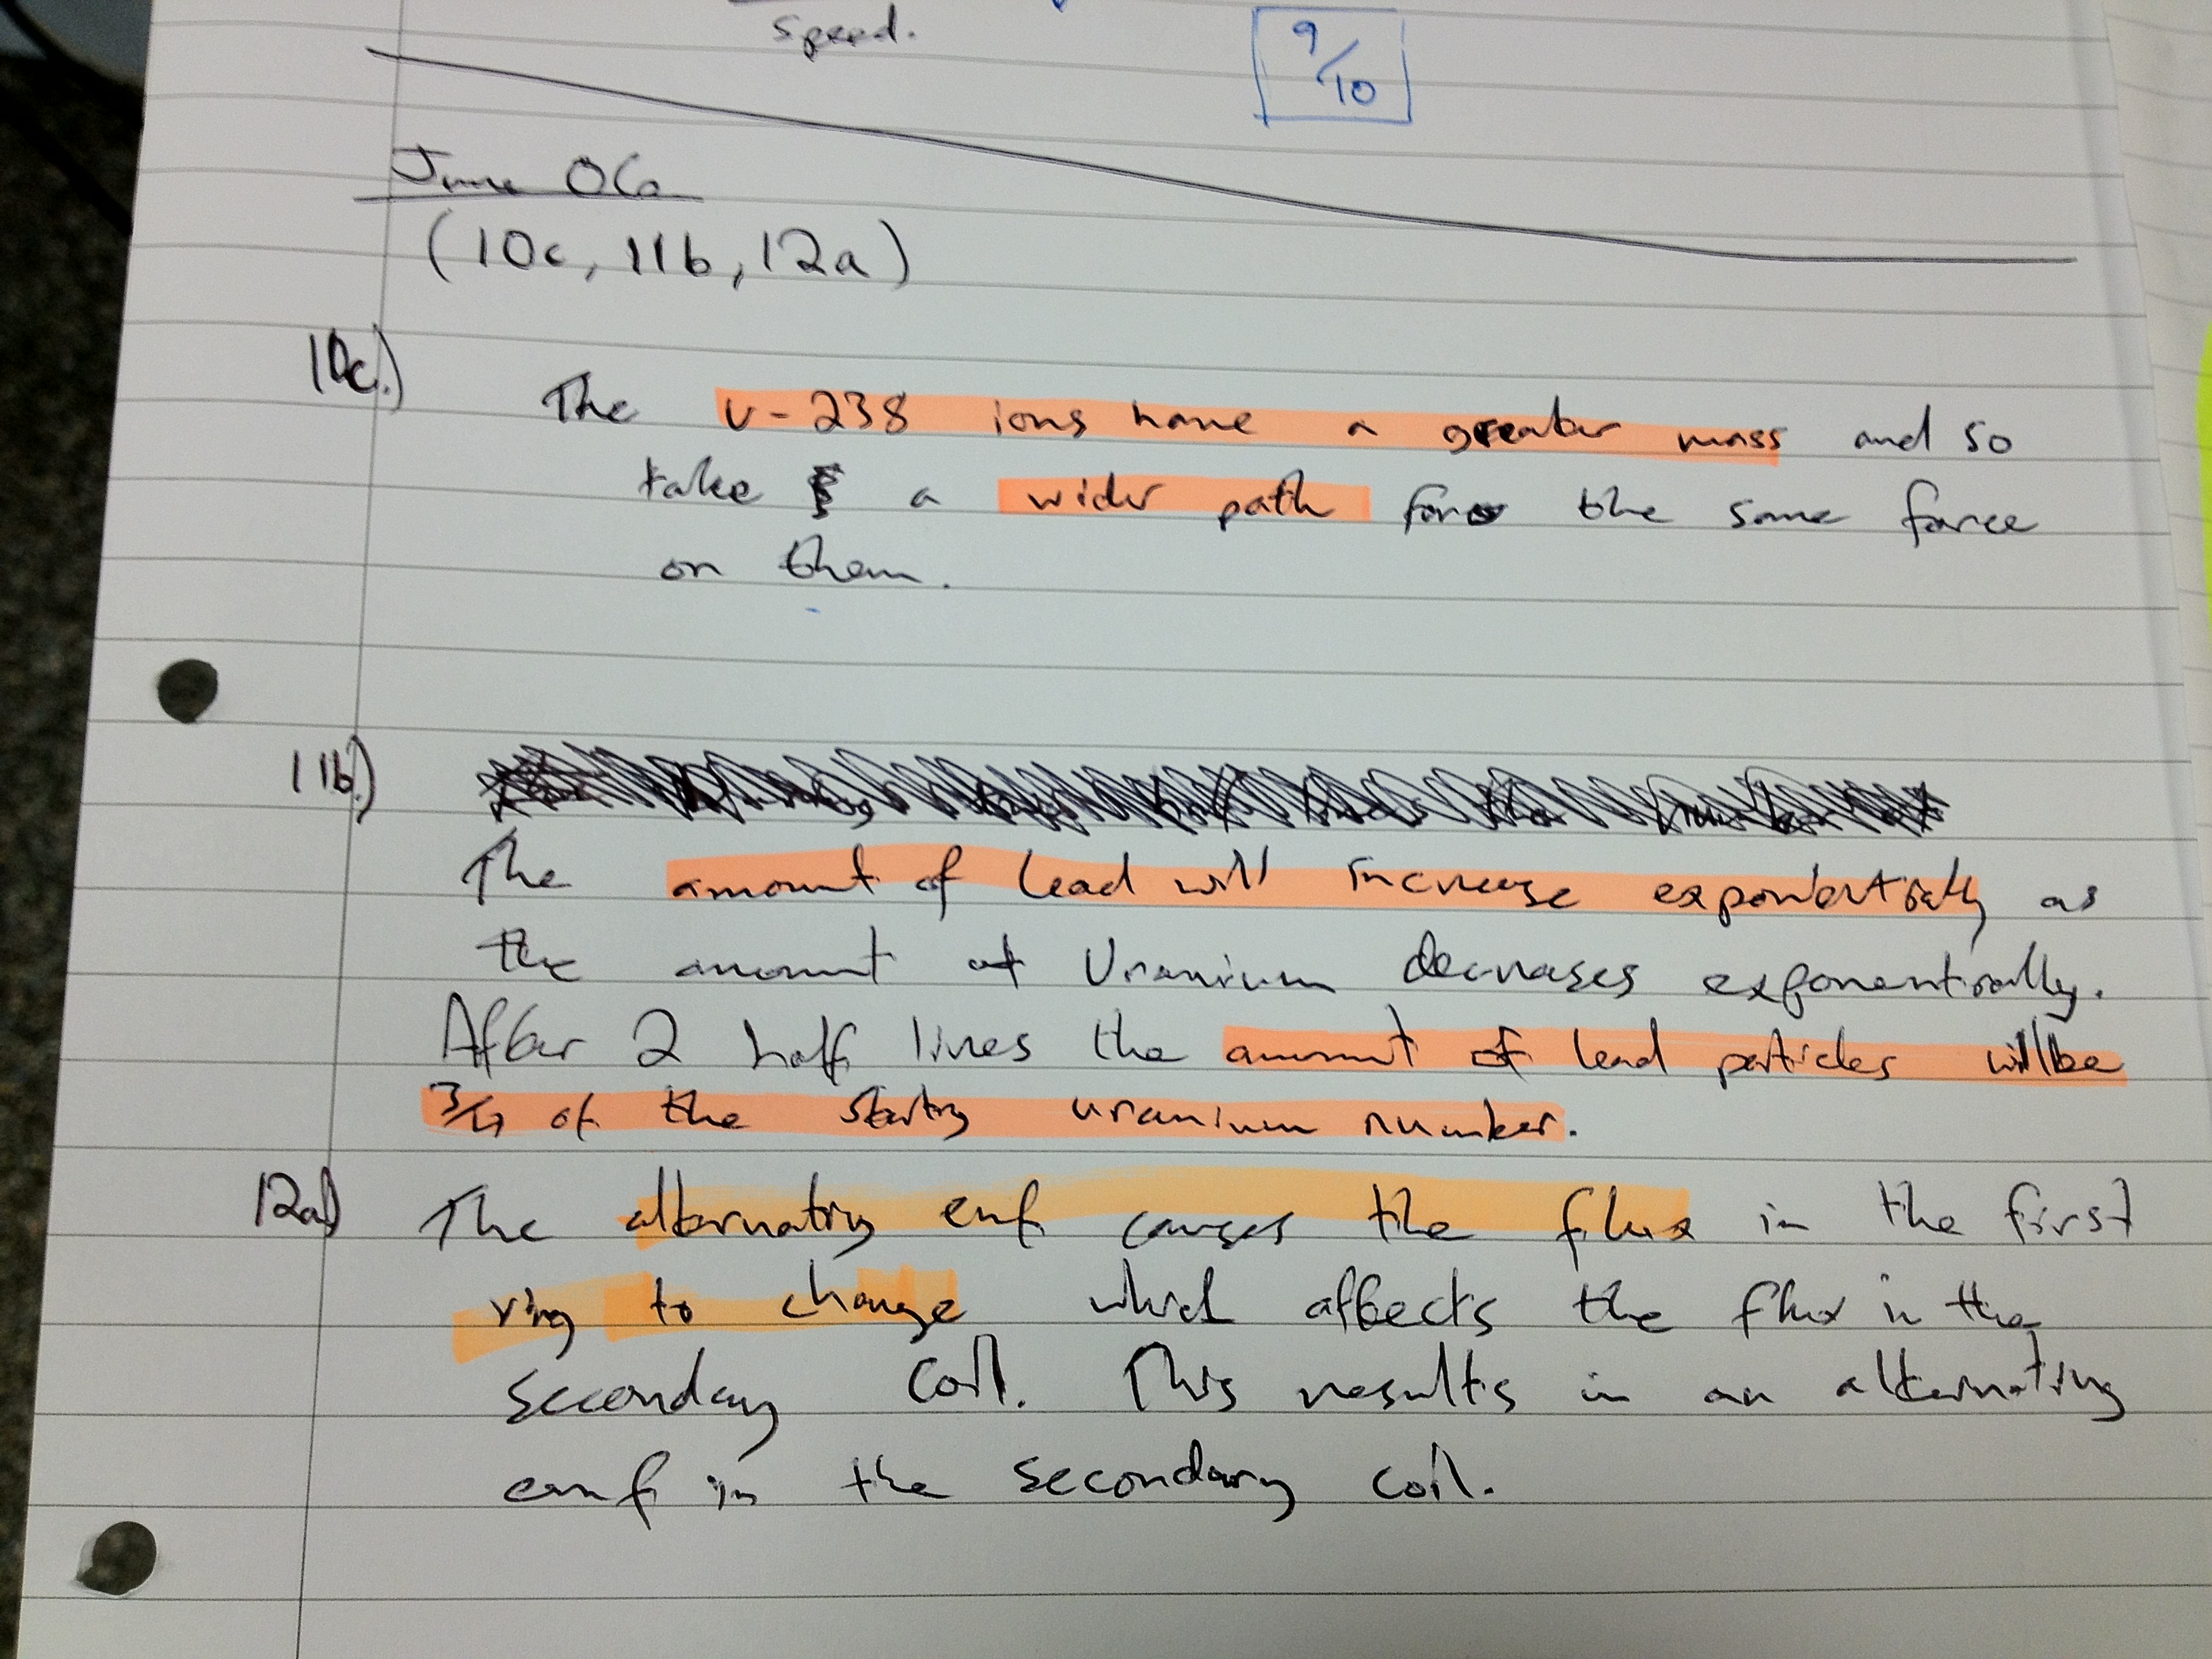 speed.
9/10
June 06
(10c, 11b, 12a)
10c.) The U-238 ions have a greater mass and so
take a wider path for the same force
on them.
11b.)
The amount of lead will increase exponentially as
the amount of Uranium decreases exponentially.
After 2 half lives the amount of lead particles will be
3/4 of the starting uranium number.
12a) The alternating emf causes the flux in the first
ring to change which affects the flux in the
secondary coil. This results in an alternating
emf in the secondary coil.